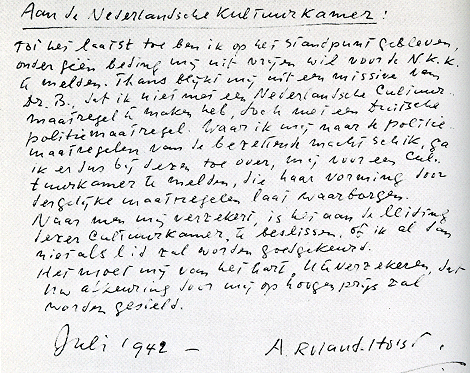 Aan de Nederlandsche Kultuurkamer:
Tot het laatst toe ben ik op het standpunt gebleven,
onder geen beding mij uit vrijen wil voor de N.K.K.
te melden. Thans blijkt mij uit een missive van
Dr. B., dat ik niet met een Nederlandsche Cultuur-
maatregel te maken heb, doch met een Duitsche
politiemaatregel. Waar ik mij naar de politie-
maatregelen van de bezettende macht schik, ga
ik er dus bij dezen toe over, mij voor een Cul-
tuurkamer te melden, die haar vorming door
dergelijke maatregelen laat waarborgen.
Naar men mij verzekert, is het aan de leiding
dezer Cultuurkamer, te beslissen, of ik al dan
niet als lid zal worden goedgekeurd.
Het moet mij van het hart, U te verzekeren, dat
Uw afkeuring door mij op hoogen prijs zal
worden gesteld.
Juli 1942 — A. Roland-Holst.